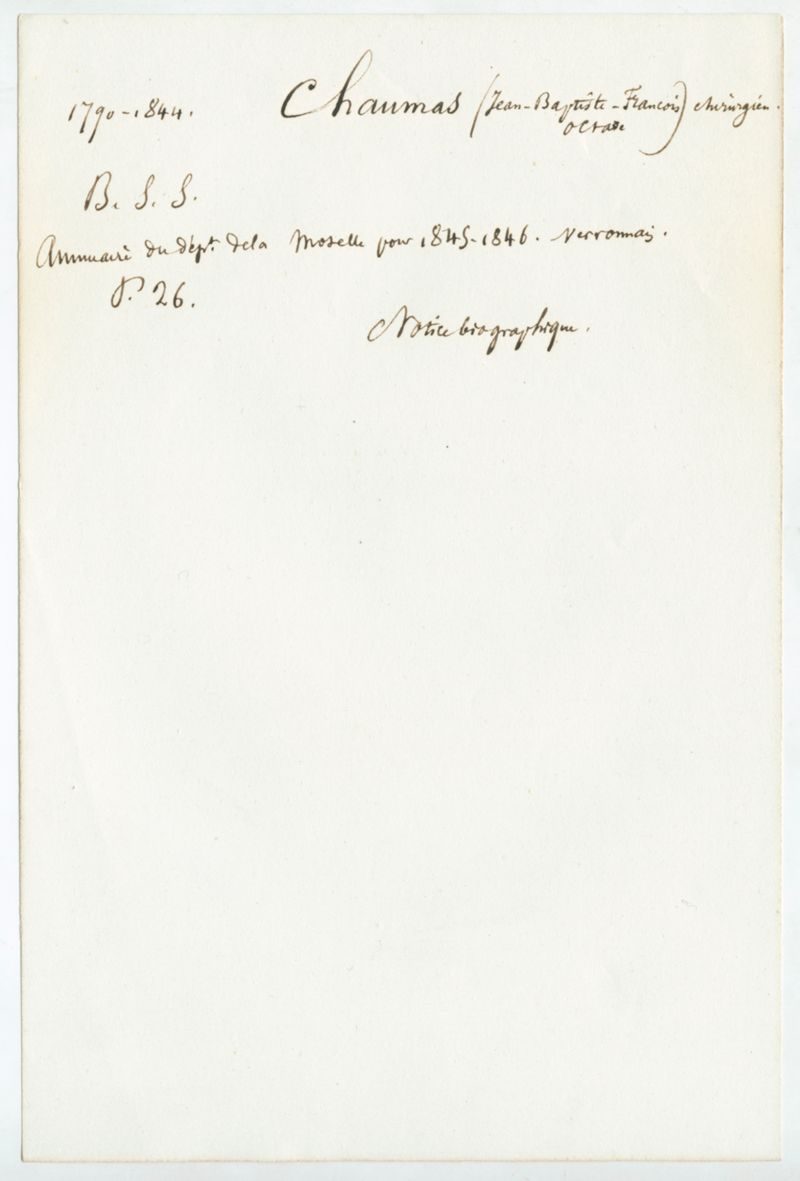 1790-1844. Chaumas (Jean-Baptiste-Francois) chirurgien.
Octave
B. S. S.
Annuaire du dépt. dela Moselle pour 1845-1846. Verronnais.
P. 26.
Notice biographique.